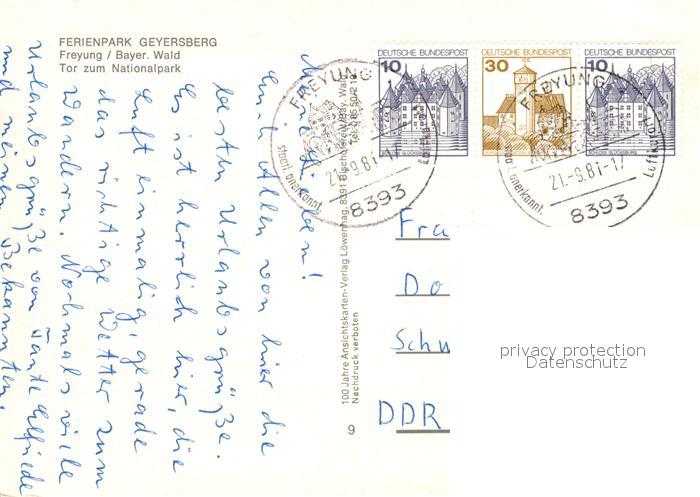 FERIENPARK GEYERSBERG
Freyung / Bayer. Wald
Tor zum Nationalpark
DEUTSCHE BUNDESPOST
10
DEUTSCHE BUNDESPOST
30
DEUTSCHE BUNDESPOST
10
FREYUNG
21.-9.81-17
8393
Staatl. anerkannt.
FREYUNG
21.-9.81-17
8393
Luftkurort
anerkannt.
Euch Allen von hier die
besten Urlaubsgrüße.
Es ist herrlich hier, die
Luft einmalig, gerade
das richtige Wetter zum
Wandern. Nochmals viele
Urlaubsgrüße von Tante Elfriede
und meinen Bekannten.
100 Jahre Ansichtskarten-Verlag Löwenhag, 8391 Bischofsreut/Bay. Wald
Nachdruck verboten
9
Fra
Do
Schu
DDR
privacy protection
Datenschutz